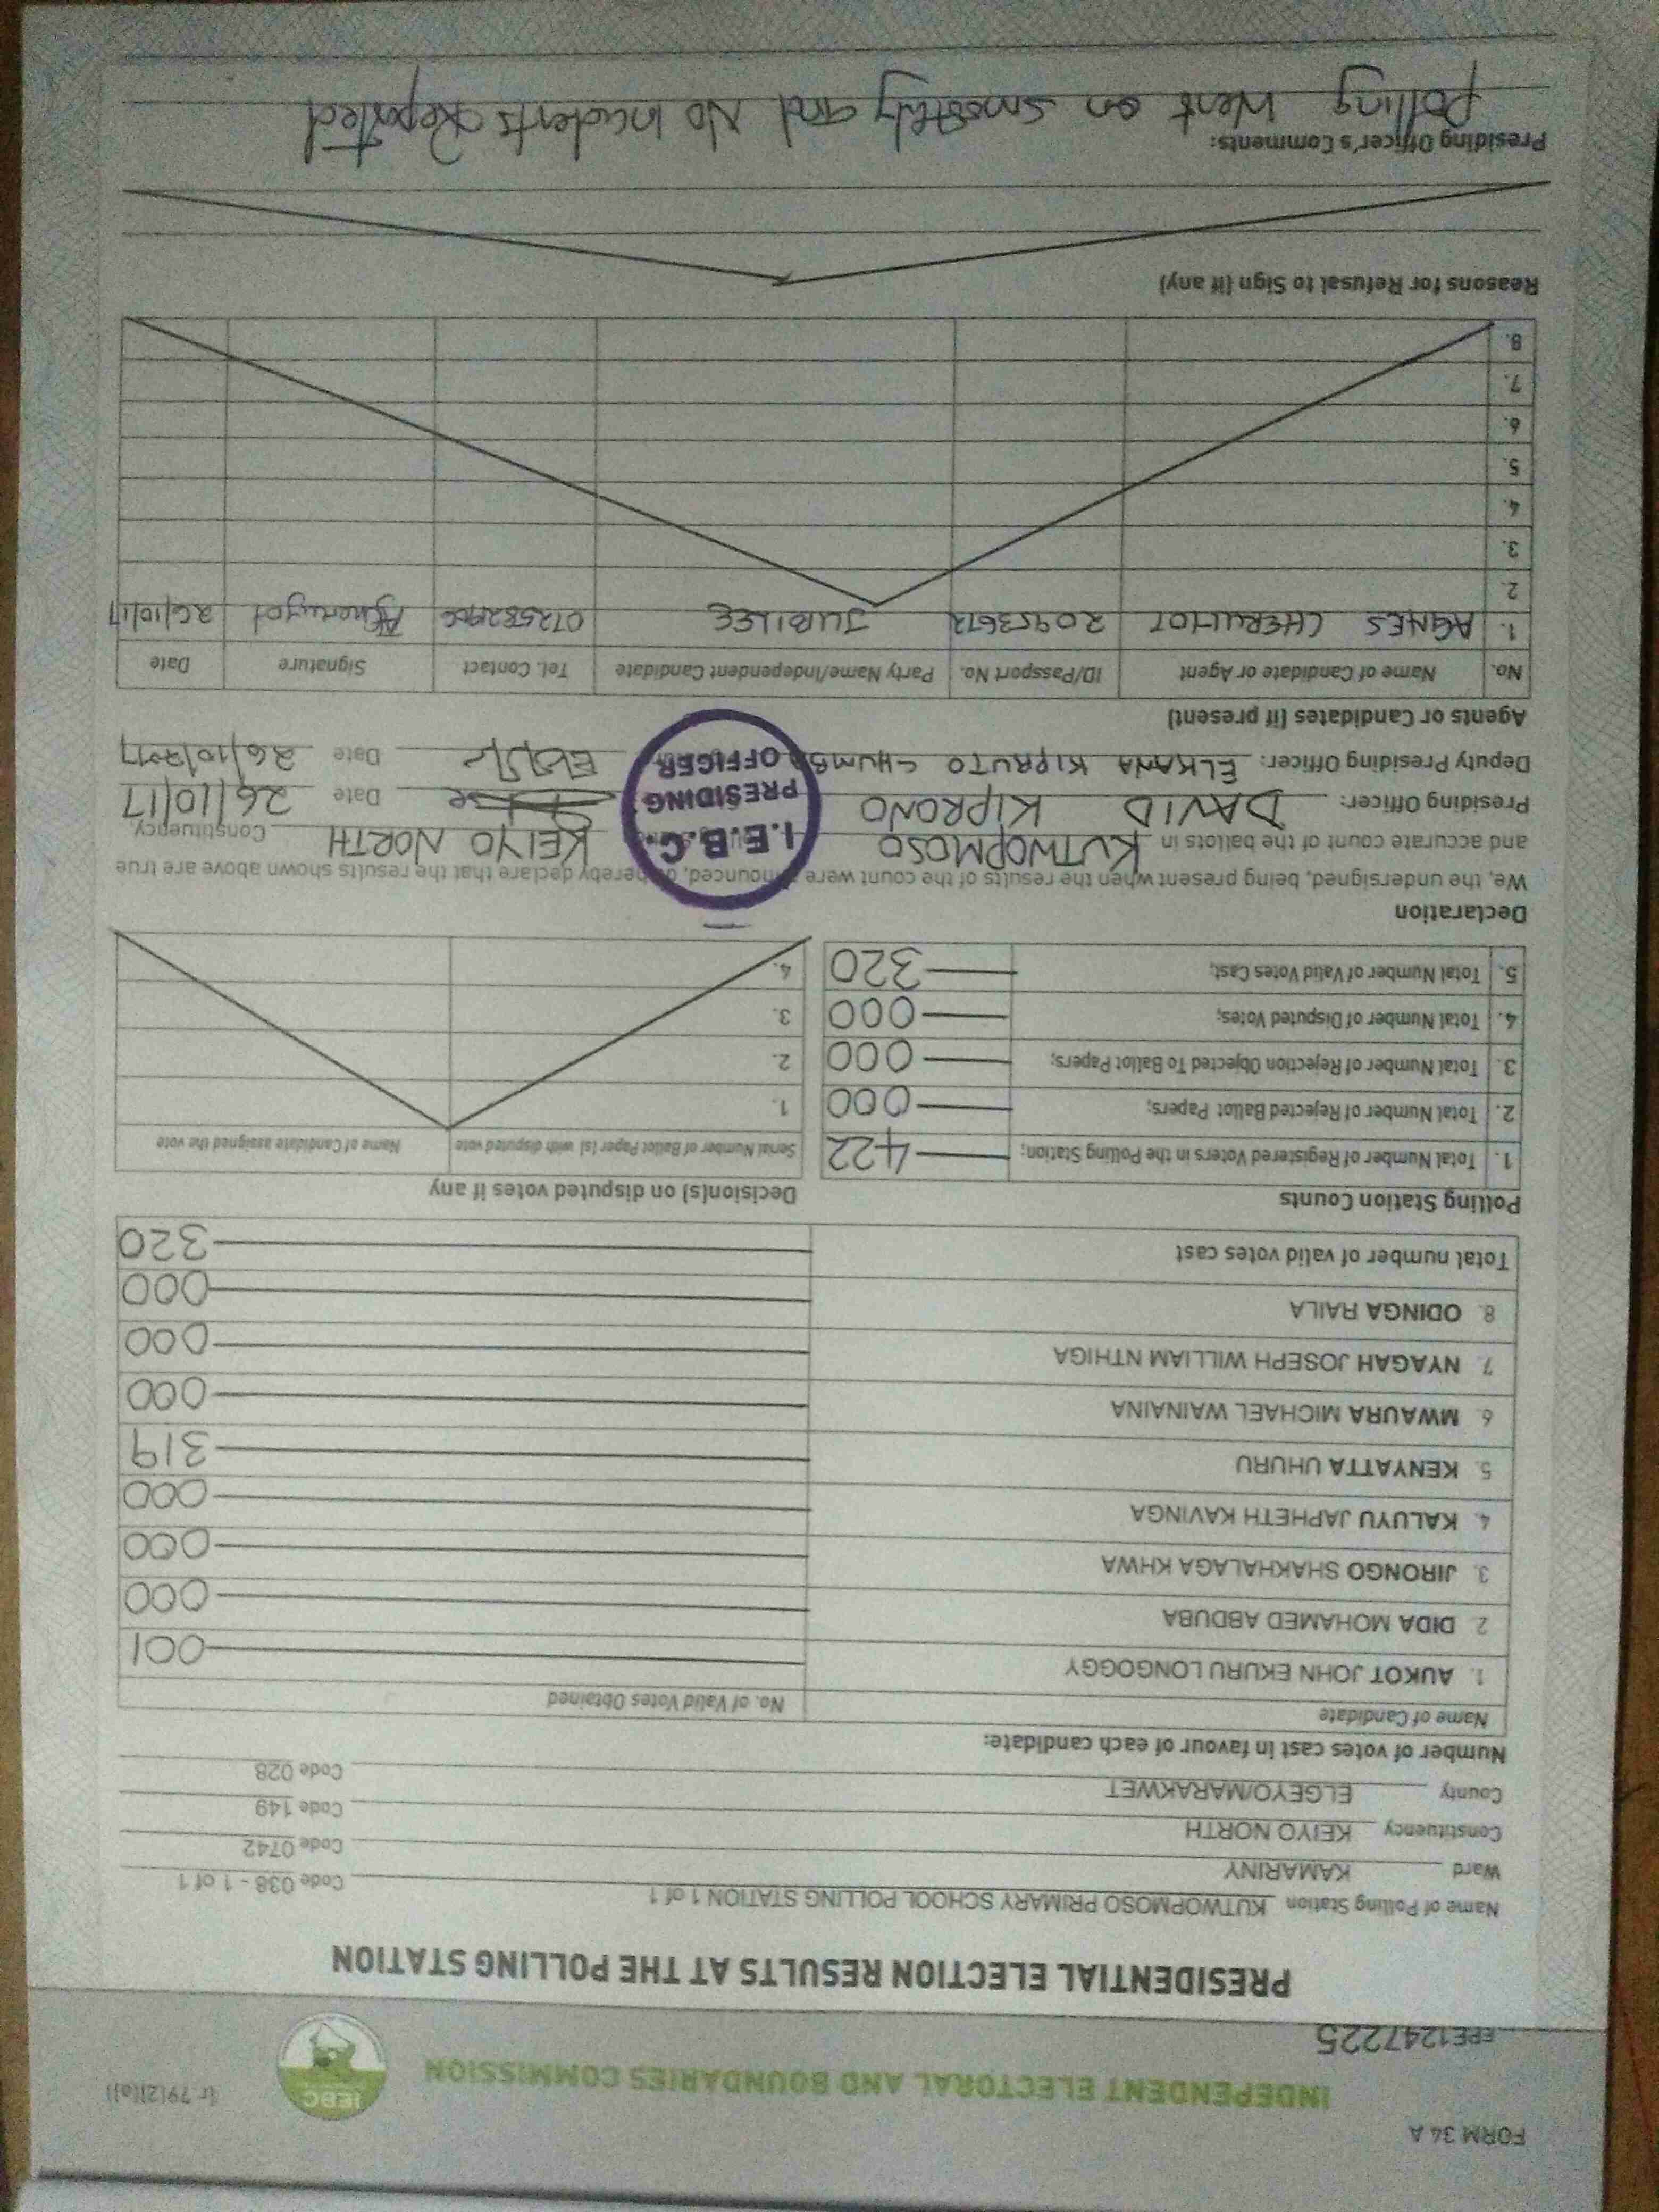 FORM 34 A
(r 79(2)(a))
INDEPENDENT ELECTORAL AND BOUNDARIES COMMISSION
IEBC
EPE1247225
PRESIDENTIAL ELECTION RESULTS AT THE POLLING STATION
Name of Polling Station KUTWOPMOSO PRIMARY SCHOOL POLLING STATION 1 of 1 Code 038 - 1 of 1
Ward KAMARINY Code 0742
Constituency KEIYO NORTH Code 149
County ELGEYO/MARAKWET Code 028
Number of votes cast in favour of each candidate:
Name of Candidate No. of Valid Votes Obtained
1. AUKOT JOHN EKURU LONGOGGY 001
2 DIDA MOHAMED ABDUBA 000
3. JIRONGO SHAKHALAGA KHWA 000
4. KALUYU JAPHETH KAVINGA 000
5. KENYATTA UHURU 319
6 MWAURA MICHAEL WAINAINA 000
7. NYAGAH JOSEPH WILLIAM NTHIGA 000
8. ODINGA RAILA 000
Total number of valid votes cast 320
Polling Station Counts
1. Total Number of Registered Voters in the Polling Station; 422
2. Total Number of Rejected Ballot Papers; 000
3. Total Number of Rejection Objected To Ballot Papers; 000
4. Total Number of Disputed Votes; 000
5. Total Number of Valid Votes Cast; 320
Decision(s) on disputed votes if any
Serial Number of Ballot Paper (s) with disputed vote Name of Candidate assigned the vote
1.
2.
3.
4.
Declaration
We, the undersigned, being present when the results of the count were announced, do hereby declare that the results shown above are true
and accurate count of the ballots in KUTWOPMOSO KEIYO NORTH Constituency.
Presiding Officer: DAVID KIPRONO Date 26/10/17
Deputy Presiding Officer: ELKANA KIPRUTO CHUMBA Date 26/10/2017
I.E.B.C.
PRESIDING
OFFICER
Agents or Candidates (if present)
No. Name of Candidate or Agent ID/Passport No. Party Name/Independent Candidate Tel. Contact Signature Date
1. AGNES CHERUIYOT 20953672 JUBILEE 26/10/17
2.
3.
4.
5.
6.
7.
8.
Reasons for Refusal to Sign (if any)
Presiding Officer's Comments:
Polling Went on Smoothly and No Incidents Reported